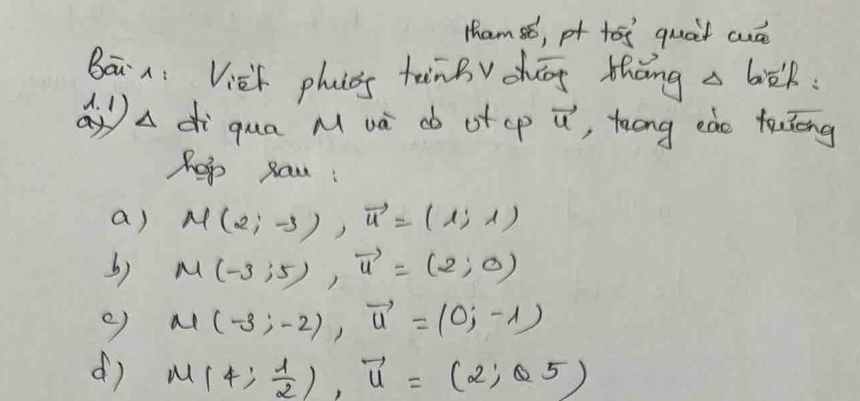 tham số, pt tổg quát của
Bài 1: Viết phươg trình v đườg thẳng Δ biết:
1.1) Δ đi qua M và có vtcp u⃗, trong các trường
hợp sau:
a) M(2; -3), u⃗ = (1; 1)
b) M(-3; 5), u⃗ = (2; 0)
c) M(-3; -2), u⃗ = (0; -1)
d) M(4; 1/2), u⃗ = (2; 5)